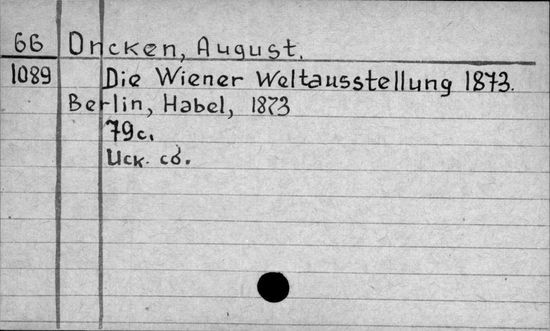 66 Oncken, August.
1089 Die Wiener Weltausstellung 1873.
Berlin, Habel, 1873
79c.
Иск. сб.